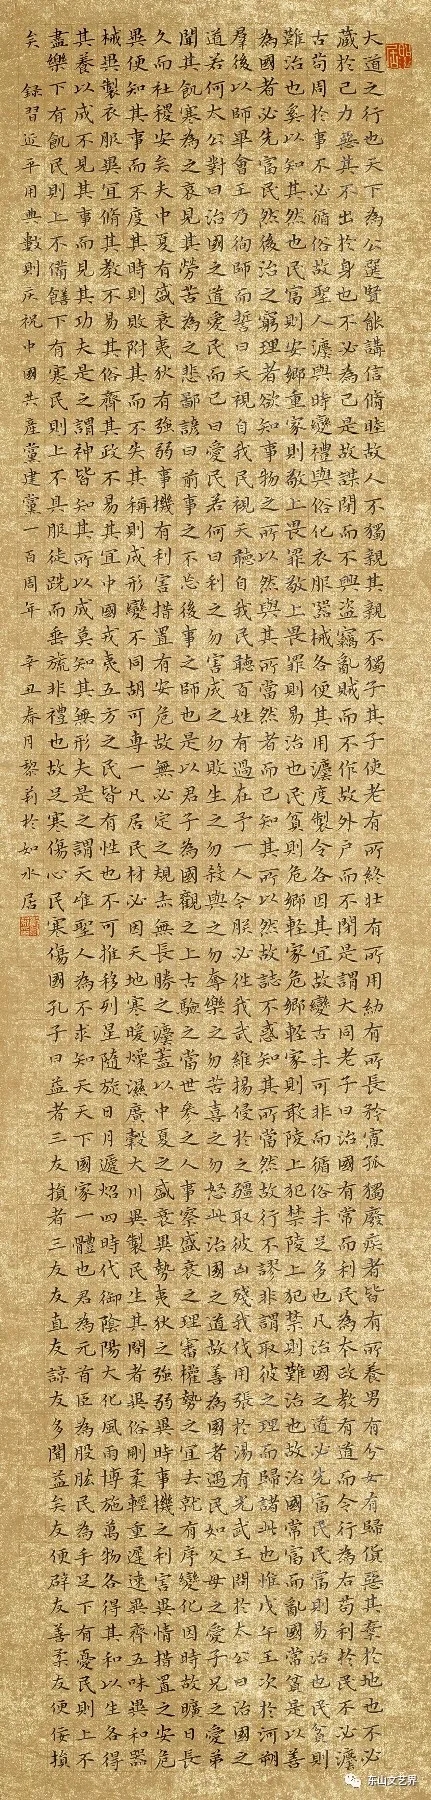 大道之行也天下為公選賢能講信脩睦故人不獨親其親不獨子其子使老有所終壯有所用幼有所長矜寡孤獨廢疾者皆有所養男有分女有歸貨惡其棄於地也不必
藏於己力惡其不出於身也不必為己是故謀閉而不興盜竊亂賊而不作故外戶而不閉是謂大同老子曰治國有常而利民為本政教有道而令行為右苟利於民不必灋
古苟周於事不必循俗故聖人灋與時變禮與俗化衣服器械各便其用灋度製令各因其宜故變古未可非而循俗未足多也凡治國之道必先富民民富則易治也民貧則
難治也奚以知其然也民富則安鄉重家則敬上畏罪敬上畏罪則易治也民貧則危鄉輕家危鄉輕家則敢陵上犯禁陵上犯禁則難治也故治國常富而亂國常貧是以善
為國者必先富民然後治之窮理者欲知事物之所以然與其所當然者而已知其所以然故誌不惑知其所當然故行不謬非謂取彼之理而歸諸此也惟戊午王次於河朔
羣後以師畢會王乃徇師而誓曰天視自我民視天聽自我民聽百姓有過在予一人今朕必往我武維揚侵於之疆取彼凶殘我伐用張於湯有光武王問於太公曰治國之
道若何太公對曰治國之道愛民而已曰愛民若何曰利之勿害成之勿敗生之勿殺與之勿奪樂之勿苦喜之勿怒此治國之道故善為國者遇民如父母之愛子兄之愛弟
聞其飢寒為之哀見其勞苦為之悲鄙諺曰前事之不忘後事之師也是以君子為國觀之上古驗之當世參之人事察盛衰之理審權勢之宜去就有序變化因時故曠日長
久而社稷安矣夫中夏有盛衰夷狄有強弱事機有利害措置有安危故無必定之規亦無長勝之灋蓋以中夏之盛衰異勢夷狄之強弱異時事機之利害異情措置之安危
異便知其事而不度其時則敗附其而不失其稱則成形變不同胡可專一凡居民材必因天地寒暖燥濕廣穀大川異製民生其間者異俗剛柔輕重遲速異齊五味異和器
械異製衣服異宜脩其教不易其俗齊其政不易其宜中國戎夷五方之民皆有性也不可推移列星隨旋日月遞炤四時代御陰陽大化風雨博施萬物各得其和以生各得
其養以成不見其事而見其功夫是之謂神皆知其所以成莫知其無形夫是之謂天唯聖人為不求知天天下國家一體也君為元首臣為股肱民為手足下有憂民則上不
盡樂下有飢民則上不備饍下有寒民則上不具服徒跣而垂旒非禮也故足寒傷心民寒傷國孔子曰益者三友損者三友友直友諒友多聞益矣友便辟友善柔友便佞損
矣 録習近平用典數則慶祝中國共產黨建黨一百周年 辛丑春月黎莉於如水居
东山文艺界